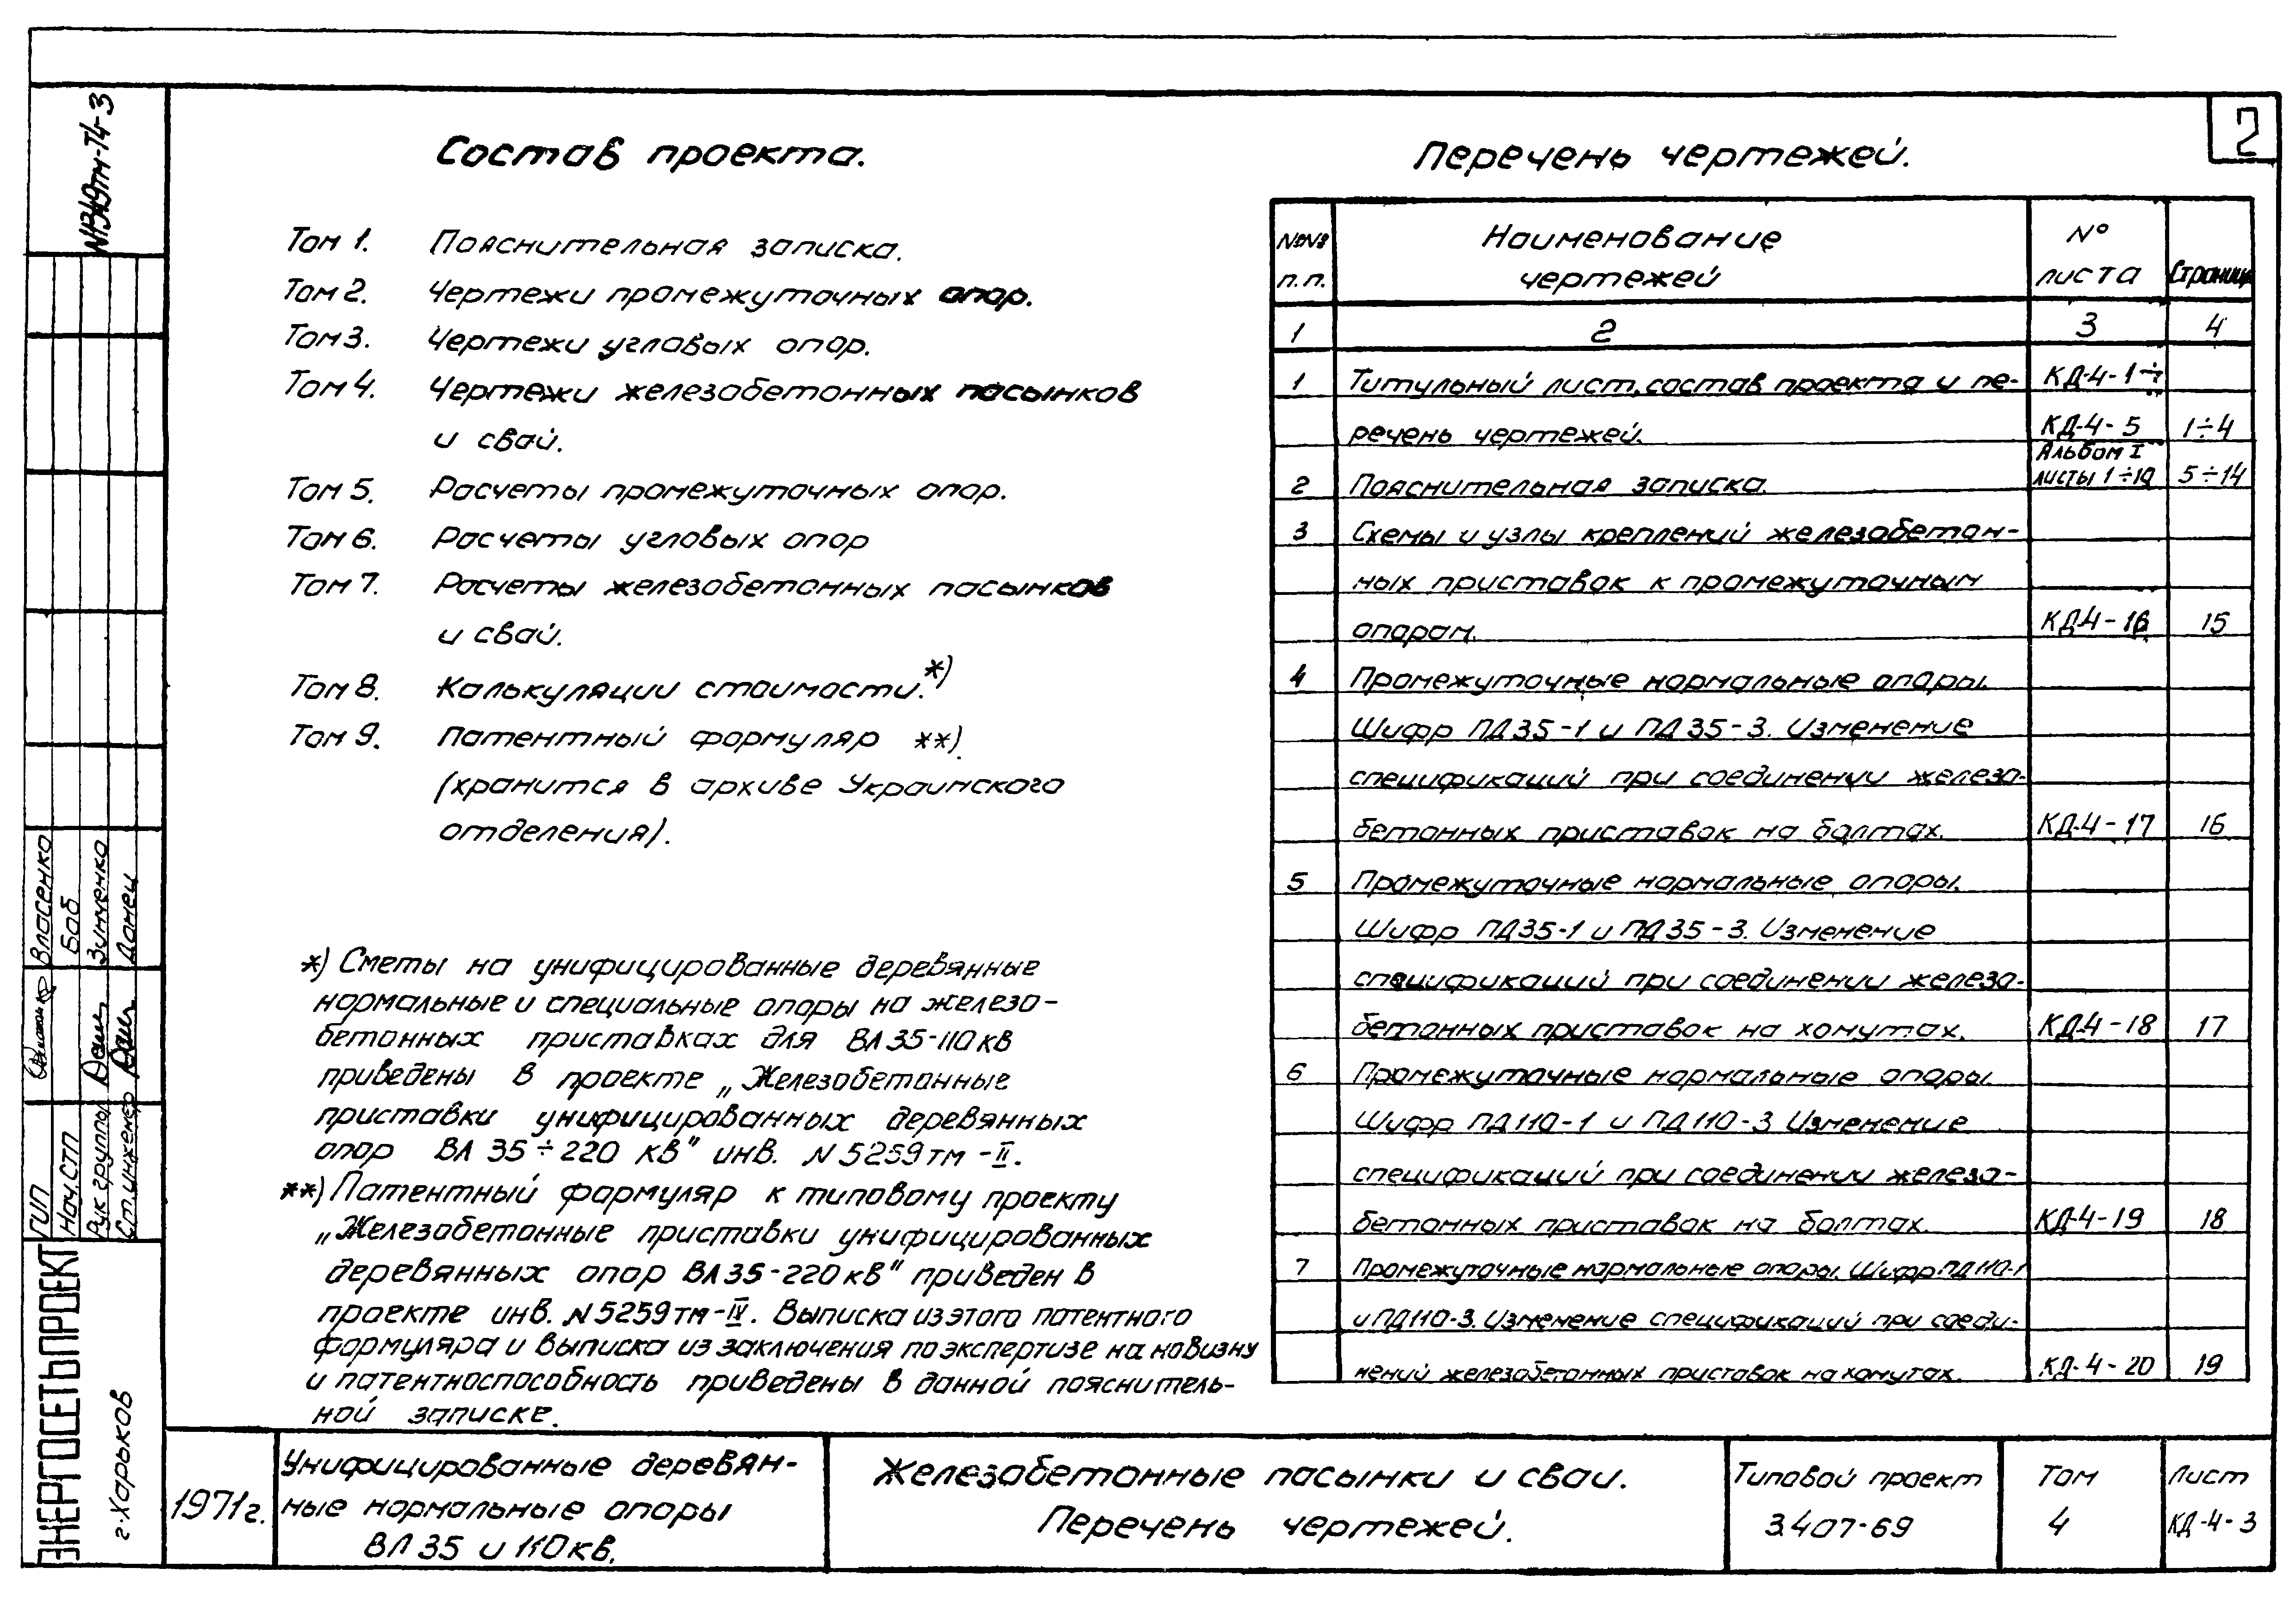 2
N1349тм-Т4-3
Состав проекта.
Том 1. Пояснительная записка.
Том 2. Чертежи промежуточных опор.
Том 3. Чертежи угловых опор.
Том 4. Чертежи железобетонных пасынков
и свай.
Том 5. Расчеты промежуточных опор.
Том 6. Расчеты угловых опор
Том 7. Расчеты железобетонных пасынков
и свай.
Том 8. Калькуляции стоимости.*)
Том 9. Патентный формуляр **).
(хранится в архиве Украинского
отделения).
*) Сметы на унифицированные деревянные
нормальные и специальные опоры на железо-
бетонных приставках для ВЛ 35-110 кв
приведены в проекте „Железобетонные
приставки унифицированных деревянных
опор ВЛ 35÷220 кВ" инв. N 5259тм-II.
**) Патентный формуляр к типовому проекту
„Железобетонные приставки унифицированных
деревянных опор ВЛ 35-220 кВ" приведен в
проекте инв. N 5259тм-IV. Выписка из этого патентного
формуляра и выписка из заключения по экспертизе на новизну
и патентноспособность приведены в данной пояснитель-
ной записке.
Перечень чертежей.
№№ п.п. Наименование чертежей № листа Страниц
1 2 3 4
1 Титульный лист, состав проекта и пе- КД-4-1÷
речень чертежей. КД-4-5 1÷4
Альбом I
2 Пояснительная записка. листы 1÷10 5÷14
3 Схемы и узлы креплений железобетон-
ных приставок к промежуточным
опорам. КД-4-16 15
4 Промежуточные нормальные опоры.
Шифр ПД35-1 и ПД35-3. Изменение
спецификаций при соединении железо-
бетонных приставок на болтах. КД-4-17 16
5 Промежуточные нормальные опоры.
Шифр ПД35-1 и ПД35-3. Изменение
спецификаций при соединении железо-
бетонных приставок на хомутах. КД-4-18 17
6 Промежуточные нормальные опоры.
Шифр ПД110-1 и ПД110-3 Изменение
спецификаций при соединении железо-
бетонных приставок на болтах. КД-4-19 18
7 Промежуточные нормальные опоры. Шифр ПД110-1
и ПД110-3. Изменение спецификаций при соеди-
нений железобетонных приставок на хомутах. КД-4-20 19
ГИП Власенко
Нач. СТП Боб
Рук группы Зинченко
Ст. инженер Донец
ЭНЕРГОСЕТЬПРОЕКТ
г. Харьков
1971г.
Унифицированные деревян-
ные нормальные опоры
ВЛ 35 и 110 кв.
Железобетонные пасынки и сваи.
Перечень чертежей.
Типовой проект
3.407-69
Том
4
Лист
КД-4-3